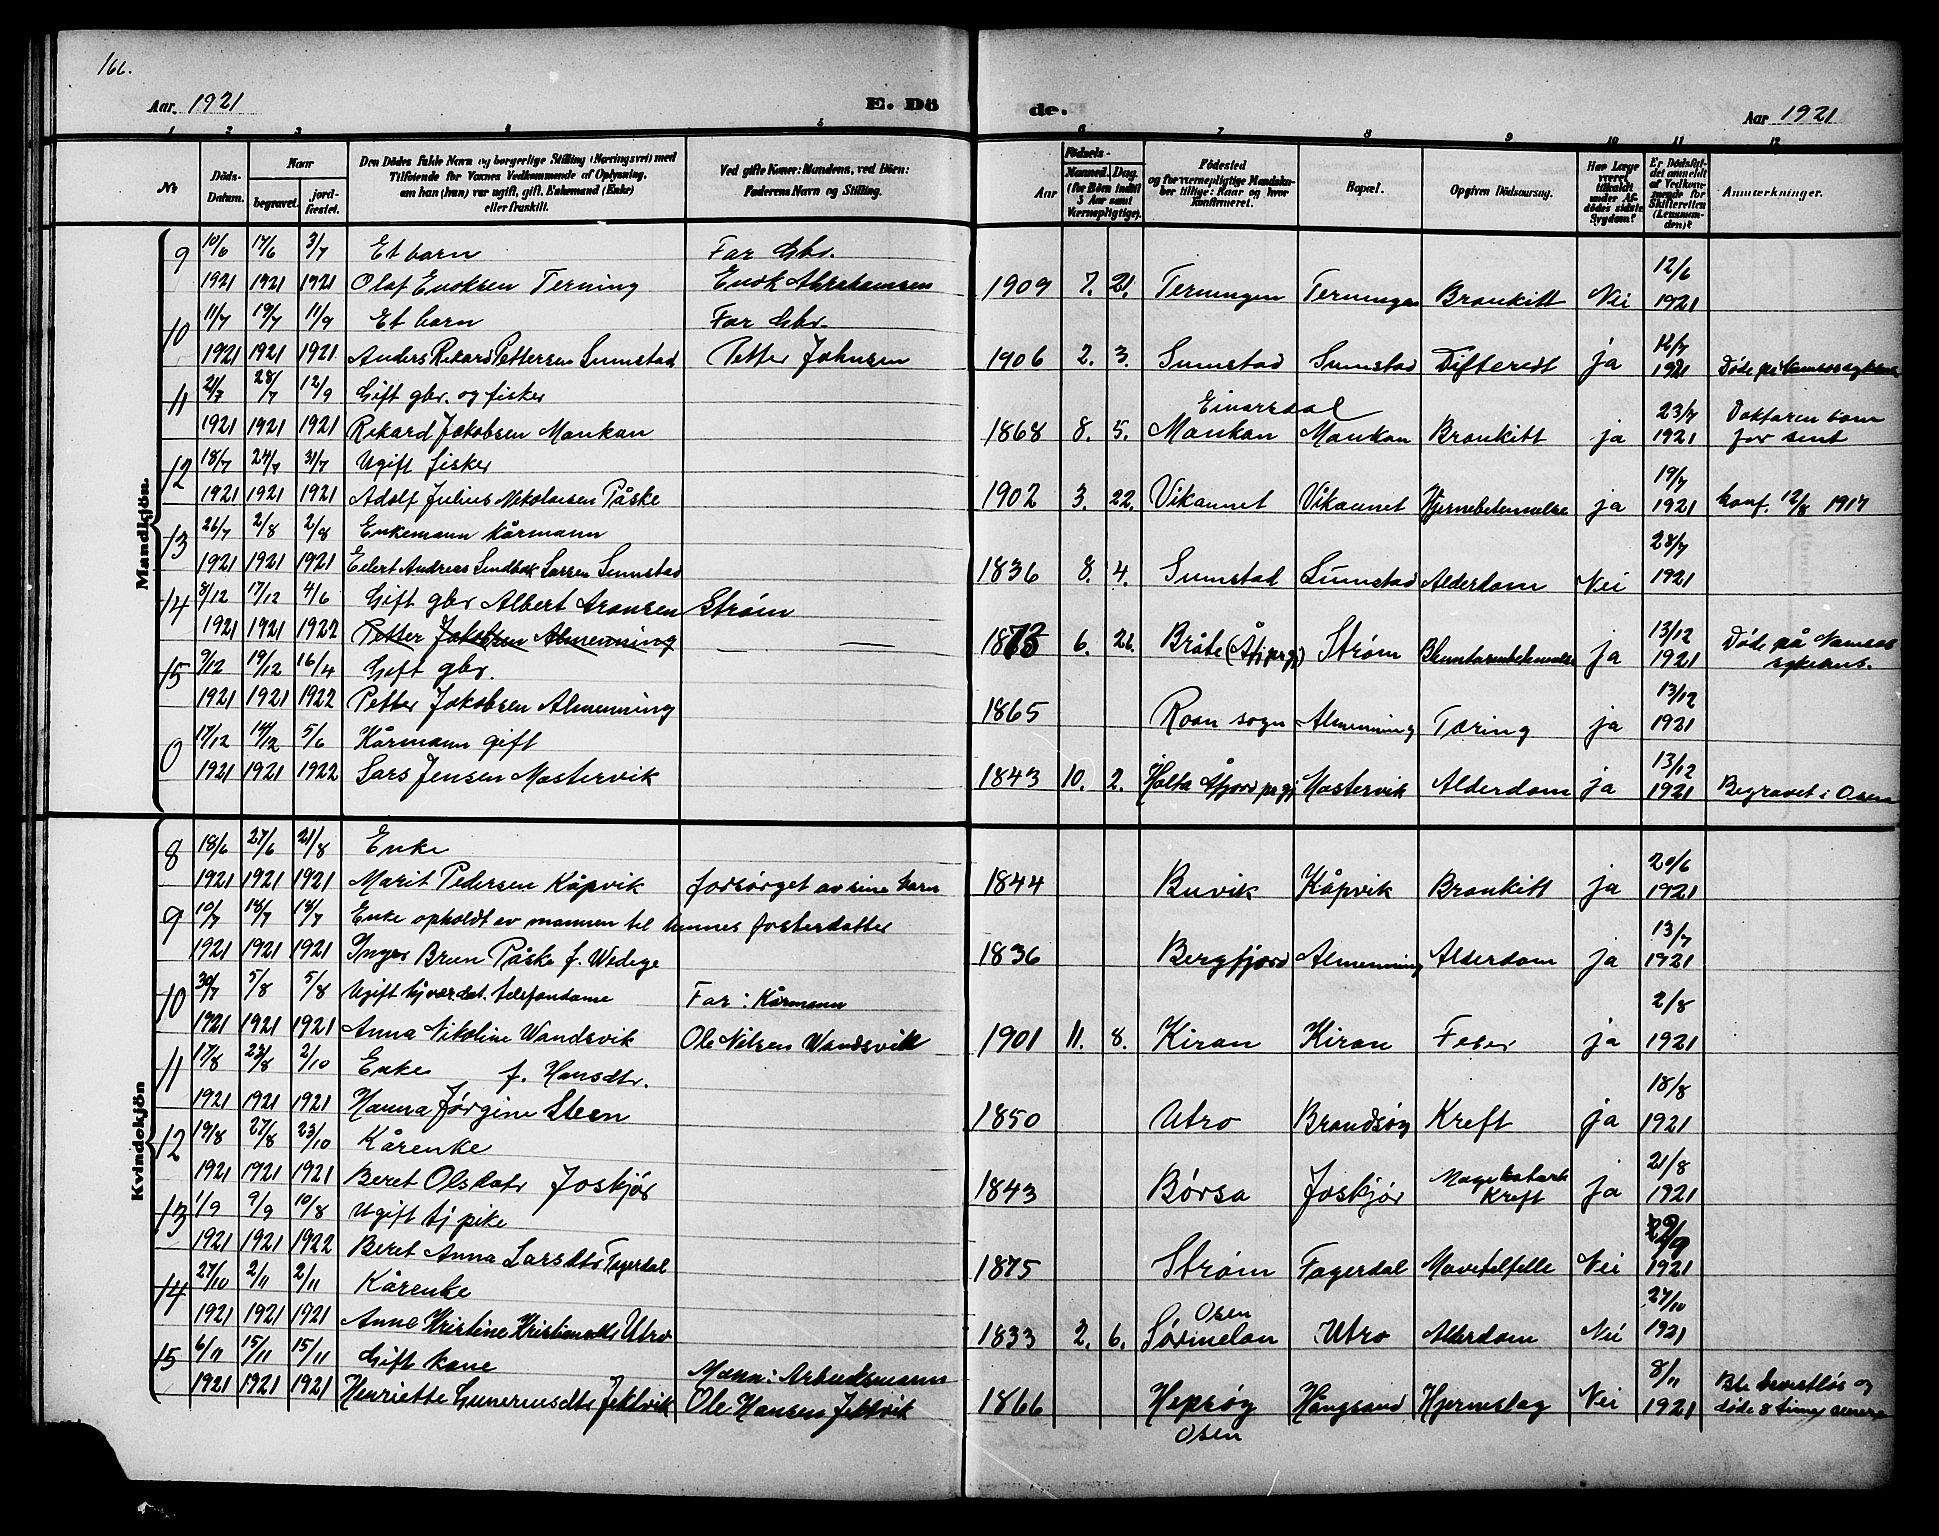 166.
Aar. 1921 E. Dö de. Aar 1921
1 2 3 4 5 6 7 8 9 10 11 12
No
Döds-Datum.
Naar
begravet.
jord-fæstet.
Den Dödes fulde Navn og borgerlige Stilling (Næringsvei) med
Tilföiende for Voxnes Vedkommende af Oplysning,
om han (hun) var ugift, gift, Enkemand (Enke)
eller fraskilt.
Ved gifte Koner: Mandens, ved Börn:
Faderens Navn og Stilling.
Födsels-
Aar
Maaned. Dag.
(for Börn indtil 3 Aar samt Værnepligtige).
Födested
og for værnepligtige Mandska-
ber tillige: Naar og hvor
konfirmeret.
Bopæl.
Opgiven Dödsaarsag.
Har Læge været tilkaldt under Af-dödes sidste Sygdom?
Er Dödsfal-det anmeldt af Vedkom-mende for Skifteretten (Lensman-den)?
Anmærkninger.
Mandkjön.
9 10/6 17/6 3/7 Et barn Far Gbr.
1921 1921 1921 Olaf Enoksen Terning Enok Abrahamsen 1909 7. 21. Terningen Terningen Bronkitt Nei 12/6 1921
10 11/7 19/7 11/9 Et barn Far Gbr.
1921 1921 1921 Anders Rikard Pettersen Sumstad Petter Johnsen 1906 2. 3. Sumstad Sumstad Difteridt ja 12/7 1921 Døde på Namsos sykehus
11 21/7 28/7 12/9 Gift gbr. og fisker
1921 1921 1921 Rikard Jakobsen Monkan 1868 8. 5. Einarsdal Monkan Monkan Bronkitt ja 23/7 1921 Doktoren kom for sent
12 18/7 27/7 31/7 Ugift fisker
1921 1921 1921 Adolf Julius Nikolaisen Påske 1902 3. 22. Vikaunet Vikaunet Hjernebetennelse ja 19/7 1921 konf. 12/8 1917
13 26/7 2/8 2/8 Enkemann kårmann
1921 1921 1921 Eilert Andreas Lindbak Larsen Sumstad 1836 8. 4. Sumstad Sumstad Alderdom Nei 28/7 1921
14 8/12 17/12 4/6 Gift gbr Albert Aronsen Strøm
1921 1921 1922 Petter Jakobsen Almenning 1873 6. 26. Bråte (Åfj prgj) Strøm Blintarmbetennelse ja 13/12 1921 Døde på Namsos sykehus.
15 9/12 19/12 16/4 Gift gbr.
1921 1921 1922 Petter Jakobsen Almenning 1865 Roan sogn Almenning Tæring ja 13/12 1921
0 17/12 5/6 Kårmann gift
1921 1921 1922 Lars Jensen Mostervik 1843 10. 2. Holta Åfjord prgj Mostervik Alderdom ja 13/12 1921 Begravet i Osen
Kvindekjön
8 18/6 27/6 21/8 Enke
1921 1921 1921 Marit Pedersen Kåpvik forsørget av sine barn 1844 Buvik Kåpvik Bronkitt ja 20/6 1921
9 10/7 18/7 18/7 Enke opholdt av mannen til hennes fosterdatter
1921 1921 1921 Inger Brun Påske f. Wedege 1836 Bergfjord Almenning Alderdom ja 13/7 1921
10 30/7 5/8 5/8 Ugift hjværdat. telefondame Far: Kårmann
1921 1921 1921 Anna Nikoline Wandsvik Ole Nilsen Wandsvik 1901 11. 8. Kiran Kiran Feber ja 2/8 1921
11 17/8 23/8 2/10 Enke f. Hansdtr.
1921 1921 1921 Hanna Jørgine Steen 1850 Utro Brandsøy Kreft ja 18/8 1921
12 19/8 27/8 23/10 Kårenke
1921 1921 1921 Beret Olsdatr Joskjør 1843 Børsa Joskjør Magekatarh Kreft ja 21/8 1921
13 1/9 9/9 10/8 Ugift tj pike
1921 1921 1922 Beret Anna Larsdtr Fagerdal 1875 Strøm Fagerdal Mavetilfelle Nei 1921
14 27/10 2/11 2/11 Kårenke
1921 1921 1921 Anne Kristine Kristiansdtr Utro 1833 2. 6. Osen Sørmelan Utro Alderdom Nei 27/10 1921
15 6/11 15/11 15/11 Gift kone Mann: Arbeidsmann
1921 1921 1921 Henriette Guneriusdtr Jektvik Ole Hansen Jektvik 1866 Hepsøy Osen Hongsand Hjerneslag Nei 8/11 1921 Ble bevistløs og døde 8 timer senere